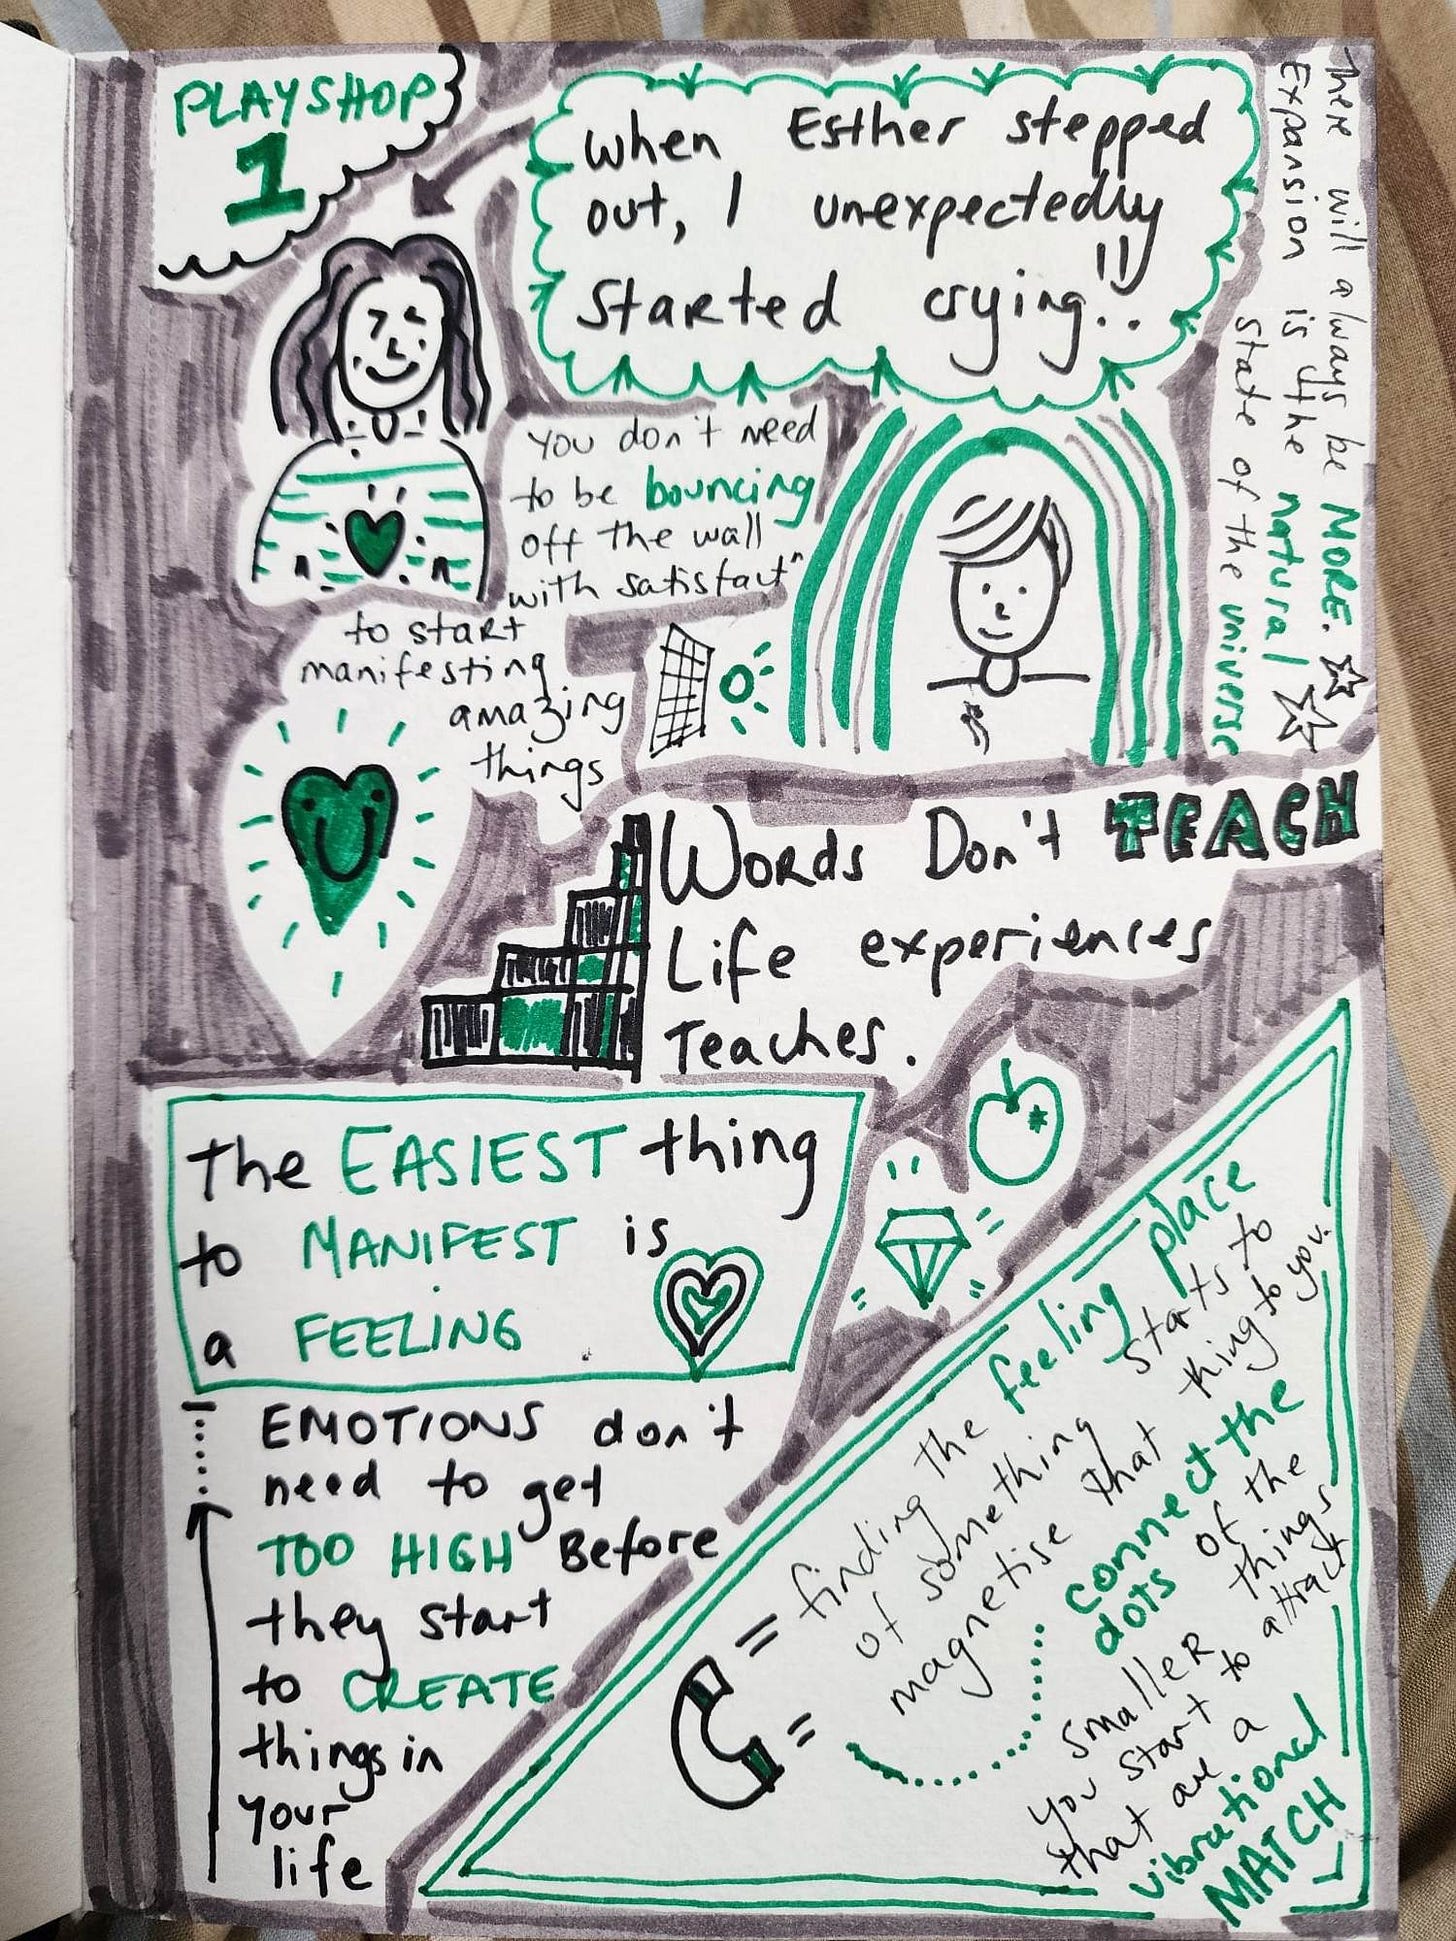 PLAYSHOP
1
When Esther stepped
out, I unexpectedly
started crying..!!
There will always be MORE.
Expansion is the natural
state of the universe
You don't need
to be bouncing
off the wall
with satisfactn
to start
manifesting
amazing
things
Words Don't TEACH
Life experiences
Teaches.
The EASIEST thing
to MANIFEST is
a FEELING
EMOTIONS don't
need to get
TOO HIGH Before
they start
to CREATE
things in
your
life
= finding the feeling place
of something starts to
magnetise that thing to you.
= connect the
dots of the
smaller things
you start to attract
that are a
vibrational
MATCH